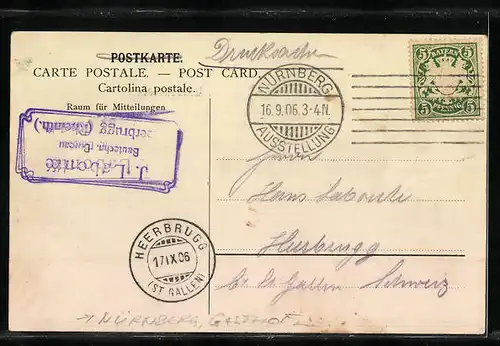 POSTKARTE.
Drucksache
CARTE POSTALE. — POST CARD.
Cartolina postale.
Raum für Mitteilungen
NÜRNBERG
16.9.06.3-4N.
AUSSTELLUNG
5 BAYERN 5
5 PFENNIG 5
J. Labonté
Bautechn. Bureau
Heerbrugg (Rheinth.)
Herrn
Hans Labonté
Heerbrugg
Ct. St. Gallen Schweiz
HEERBRUGG
17.IX.06
(ST. GALLEN)
→ NÜRNBERG, GASTHOF